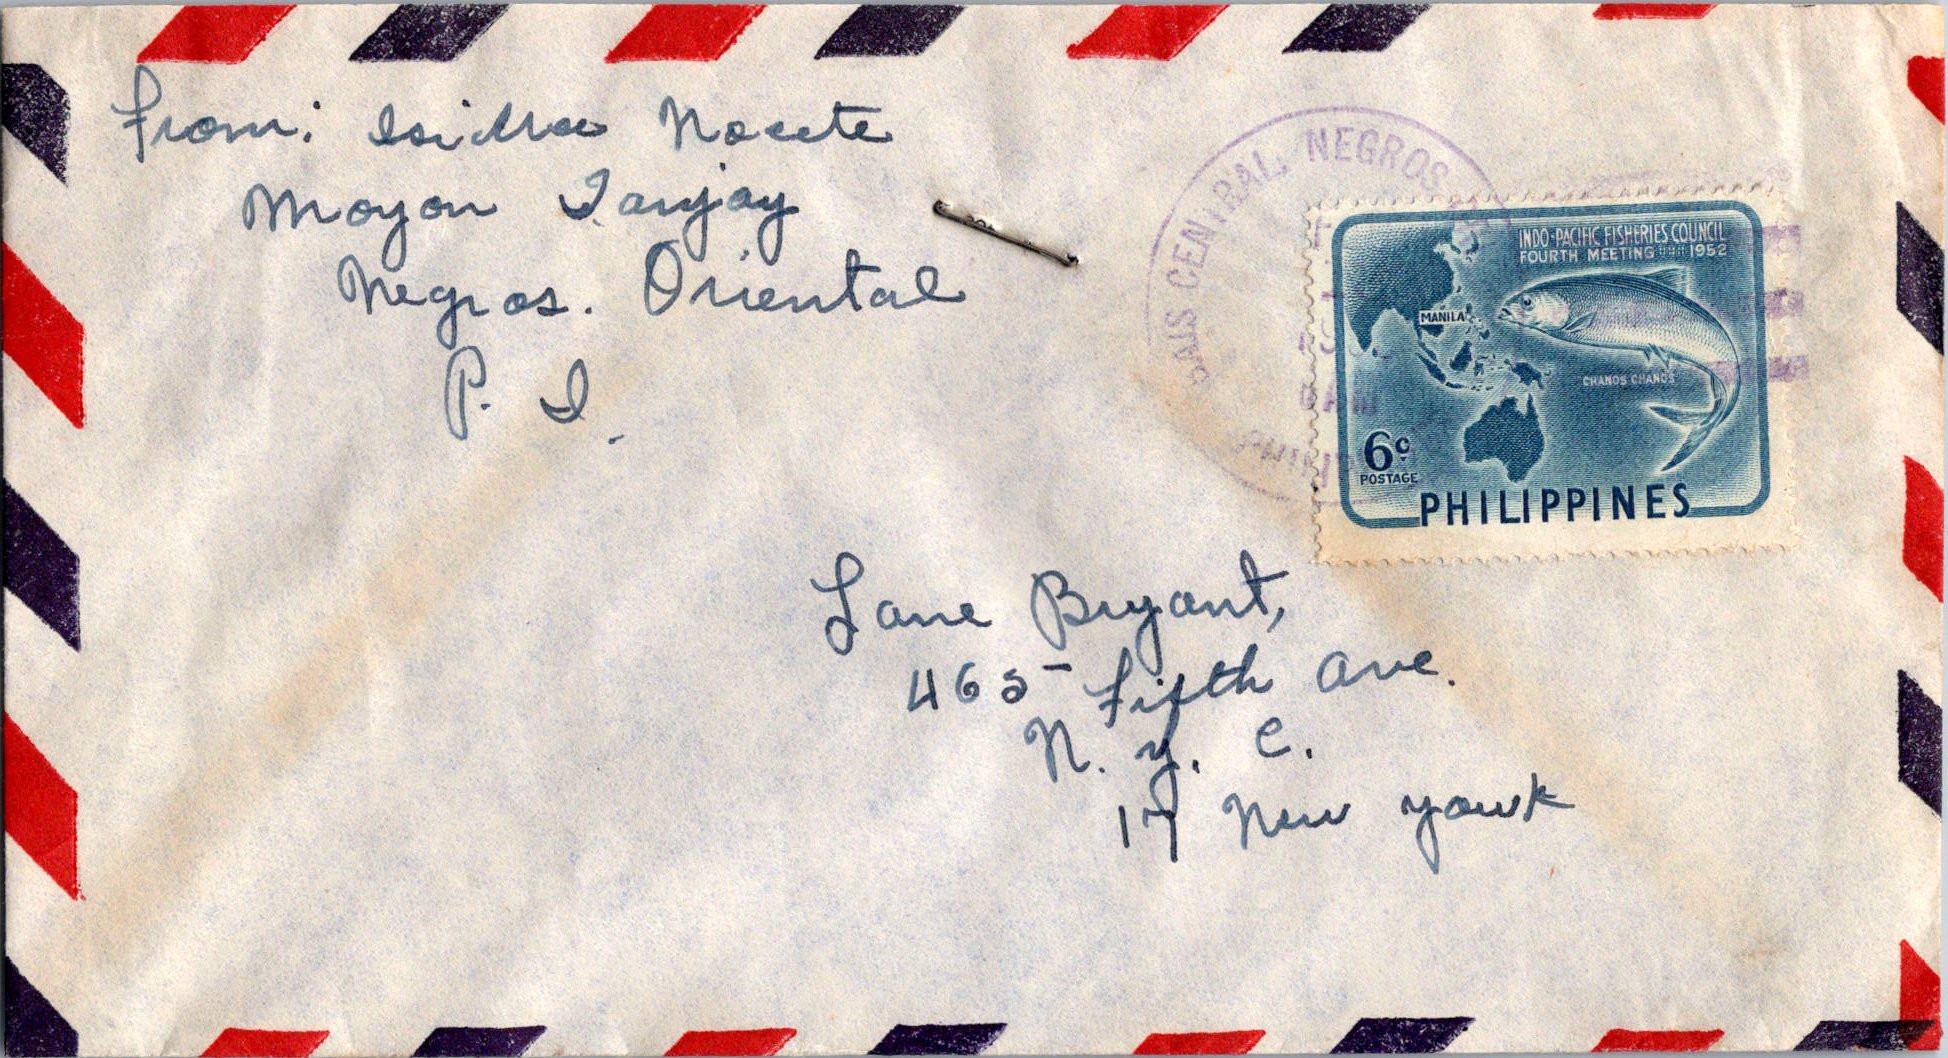 From: Isidra Nocete
Moyon Tanjay
Negros. Oriental
P. I.
BAIS CENTRAL, NEGROS
INDO-PACIFIC FISHERIES COUNCIL
FOURTH MEETING 1952
MANILA
CHANOS CHANOS
6c
POSTAGE
PHILIPPINES
Lane Bryant,
465 Fifth Ave.
N. Y. C.
17 New Yourk